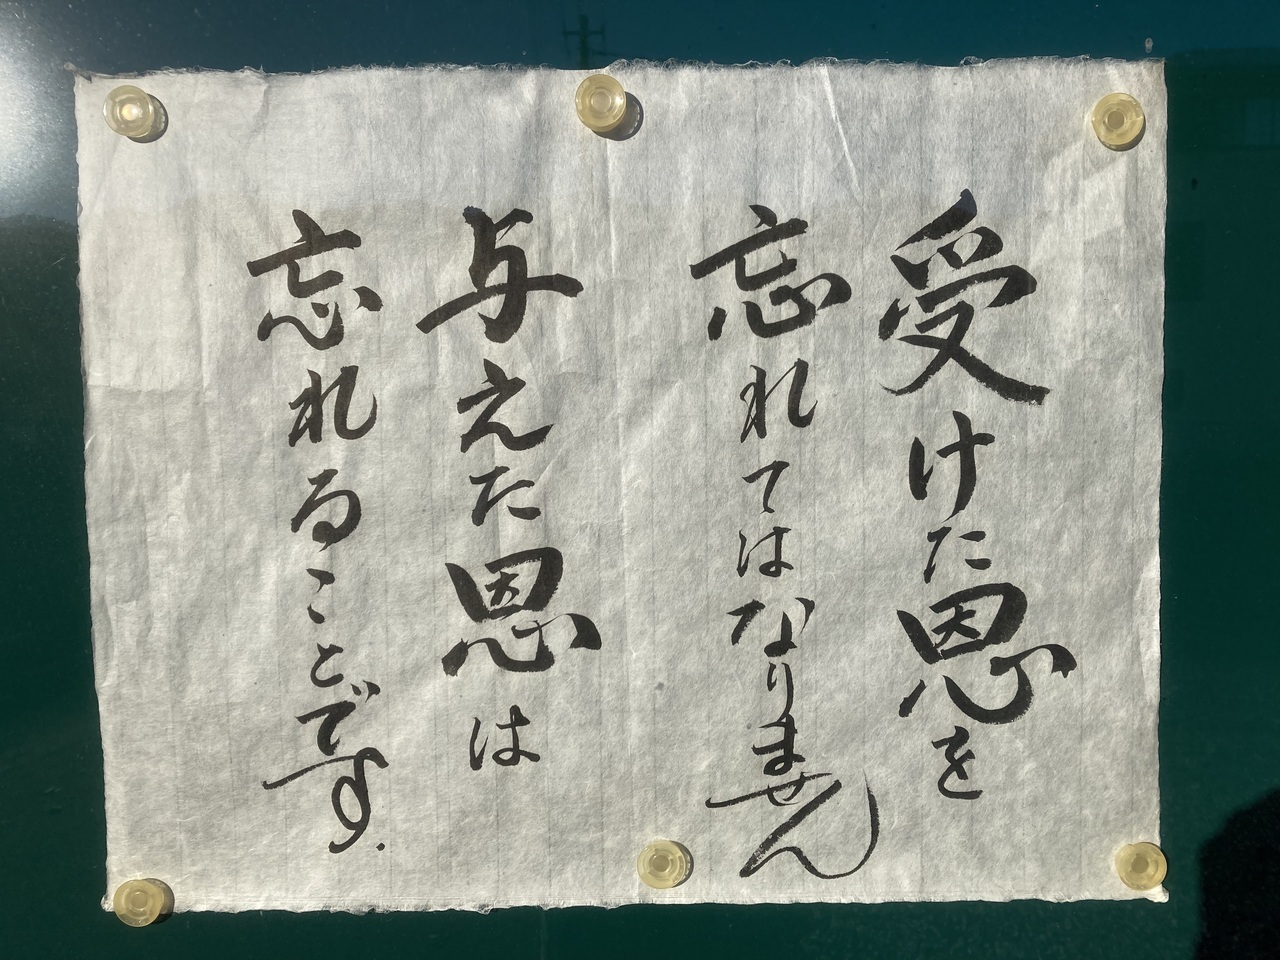 受けた恩を
忘れてはなりません
与えた恩は
忘れることです.